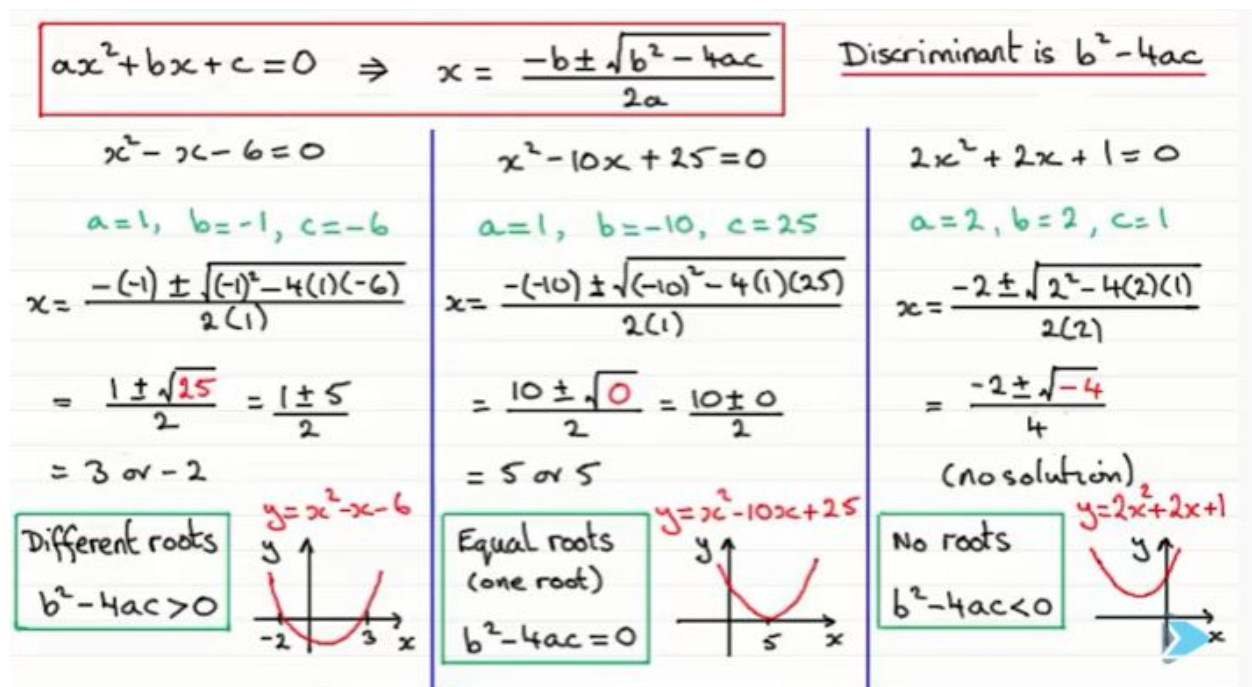 ax²+bx+c=0 ⇒ x = (-b±√(b²-4ac))/(2a)
Discriminant is b²-4ac
x²-x-6=0
a=1, b=-1, c=-6
x= (-(-1) ± √((-1)²-4(1)(-6)))/(2(1))
= (1±√25)/2 = (1±5)/2
= 3 or -2
Different roots
b²-4ac>0
y=x²-x-6
y
-2 3 x
x²-10x+25=0
a=1, b=-10, c=25
x= (-(-10) ± √((-10)²-4(1)(25)))/(2(1))
= (10±√0)/2 = (10±0)/2
= 5 or 5
Equal roots
(one root)
b²-4ac=0
y=x²-10x+25
y
5 x
2x²+2x+1=0
a=2, b=2, c=1
x= (-2±√(2²-4(2)(1)))/(2(2))
= (-2±√-4)/4
(no solution)
No roots
b²-4ac<0
y=2x²+2x+1
y
x